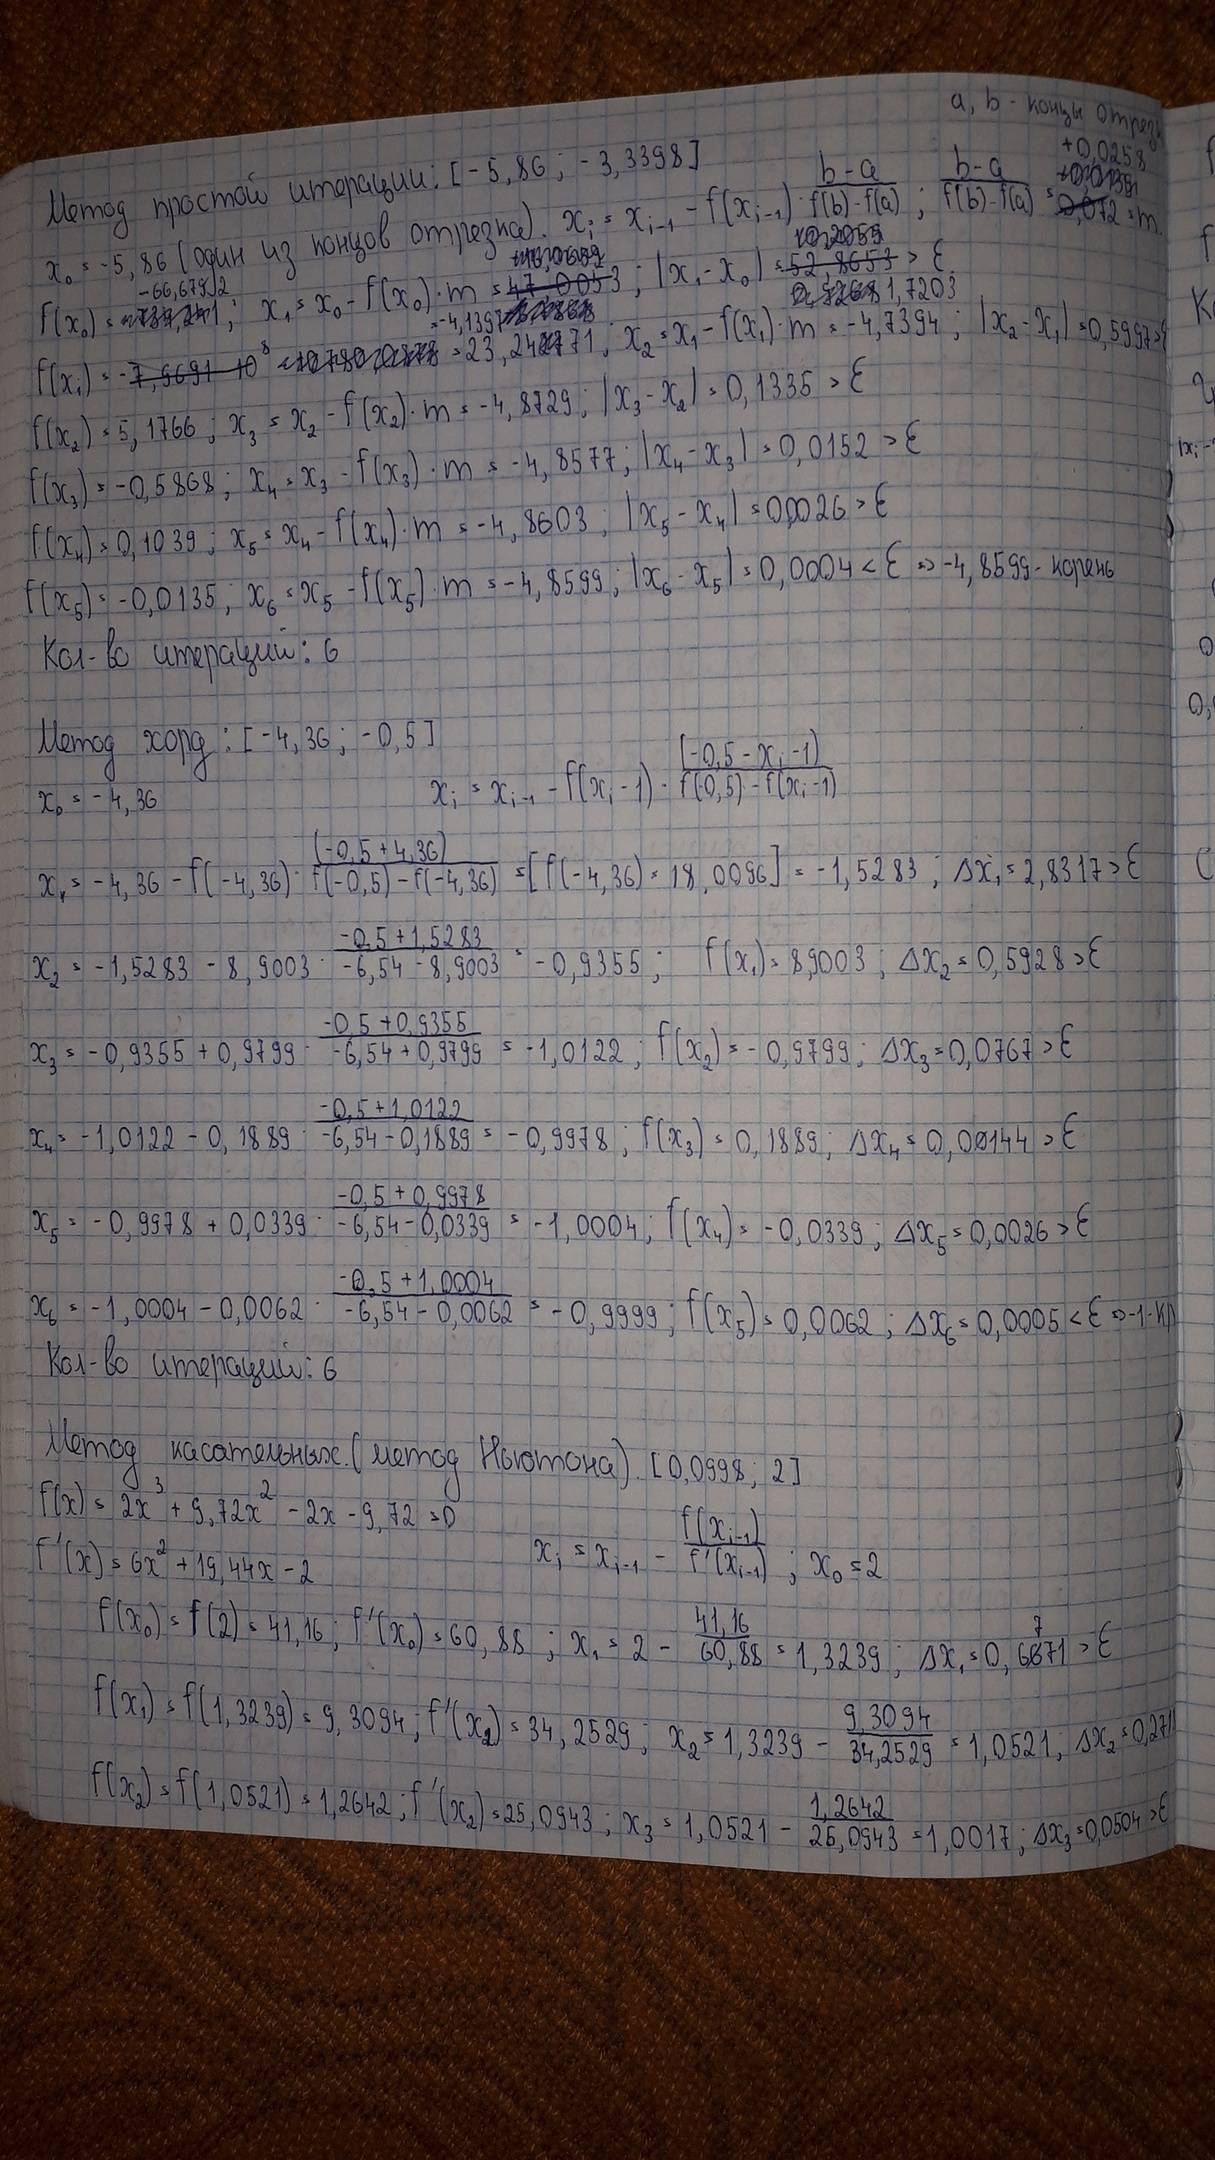 a, b - концы отрезк
Метод простой итерации: [-5,86 ; -3,3398]
x₀ = -5,86 (один из концов отрезка). xᵢ = xᵢ₋₁ - f(xᵢ₋₁) · (b-a)/(f(b)-f(a)) ; (b-a)/(f(b)-f(a)) = +0,0258 = m
f(x₀) = -66,67992 ; x₁ = x₀ - f(x₀) · m = -4,1397 ; |x₁ - x₀| = 1,7203 > ε
f(x₁) = 23,242771 ; x₂ = x₁ - f(x₁) · m = -4,7394 ; |x₂ - x₁| = 0,5997 > ε
f(x₂) = 5,1766 ; x₃ = x₂ - f(x₂) · m = -4,8729 ; |x₃ - x₂| = 0,1335 > ε
f(x₃) = -0,5868 ; x₄ = x₃ - f(x₃) · m = -4,8577 ; |x₄ - x₃| = 0,0152 > ε
f(x₄) = 0,1039 ; x₅ = x₄ - f(x₄) · m = -4,8603 ; |x₅ - x₄| = 0,0026 > ε
f(x₅) = -0,0135 ; x₆ = x₅ - f(x₅) · m = -4,8599 ; |x₆ - x₅| = 0,0004 < ε ⇒ -4,8599 - корень
Кол-во итераций: 6
Метод хорд: [-4,36 ; -0,5]
x₀ = -4,36 xᵢ = xᵢ₋₁ - f(xᵢ-1) · (-0,5 - xᵢ-1)/(f(-0,5) - f(xᵢ-1))
x₁ = -4,36 - f(-4,36) · (-0,5+4,36)/(f(-0,5) - f(-4,36)) = [f(-4,36) = 18,0096] = -1,5283 ; Δx₁ = 2,8317 > ε
x₂ = -1,5283 - 8,9003 · (-0,5+1,5283)/(-6,54 - 8,9003) = -0,9355 ; f(x₁) = 8,9003 ; Δx₂ = 0,5928 > ε
x₃ = -0,9355 + 0,9799 · (-0,5+0,9355)/(-6,54 + 0,9799) = -1,0122 ; f(x₂) = -0,9799 ; Δx₃ = 0,0767 > ε
x₄ = -1,0122 - 0,1889 · (-0,5+1,0122)/(-6,54 - 0,1889) = -0,9978 ; f(x₃) = 0,1889 ; Δx₄ = 0,00144 > ε
x₅ = -0,9978 + 0,0339 · (-0,5+0,9978)/(-6,54 - 0,0339) = -1,0004 ; f(x₄) = -0,0339 ; Δx₅ = 0,0026 > ε
x₆ = -1,0004 - 0,0062 · (-0,5+1,0004)/(-6,54 - 0,0062) = -0,9999 ; f(x₅) = 0,0062 ; Δx₆ = 0,0005 < ε ⇒ -1 - к
Кол-во итераций: 6
Метод касательных. (метод Ньютона). [0,0998 ; 2]
f(x) = 2x³ + 9,72x² - 2x - 9,72 = 0
f'(x) = 6x² + 19,44x - 2 xᵢ = xᵢ₋₁ - f(xᵢ₋₁)/f'(xᵢ₋₁) ; x₀ = 2
f(x₀) = f(2) = 41,16 ; f'(x₀) = 60,88 ; x₁ = 2 - 41,16/60,88 = 1,3239 ; Δx₁ = 0,6771 > ε
f(x₁) = f(1,3239) = 9,3094 ; f'(x₂) = 34,2529 ; x₂ = 1,3239 - 9,3094/34,2529 = 1,0521 ; Δx₂ = 0,271
f(x₂) = f(1,0521) = 1,2642 ; f'(x₂) = 25,0943 ; x₃ = 1,0521 - 1,2642/25,0943 = 1,0017 ; Δx₃ = 0,0504 > ε